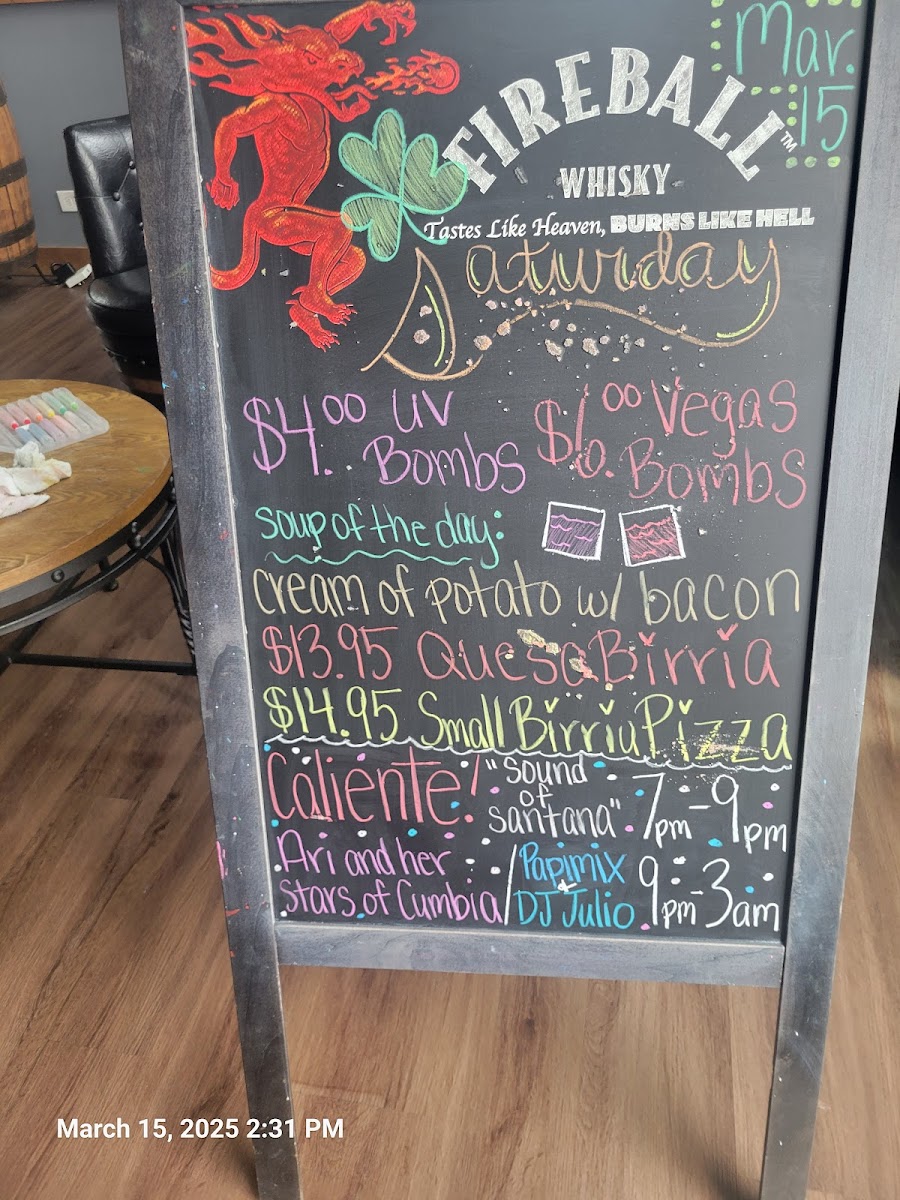 FIREBALL™
WHISKY
Tastes Like Heaven, BURNS LIKE HELL
Mar.
15
Saturday
$4.00 UV
Bombs
$6.00 Vegas
Bombs
soup of the day:
cream of potato w/ bacon
$13.95 QuesaBirria
$14.95 Small Birria Pizza
Caliente! "Sound
of
santana" 7pm-9pm
Ari and her
Stars of Cumbia/
Papimix
DJ Julio
9pm-3am
March 15, 2025 2:31 PM